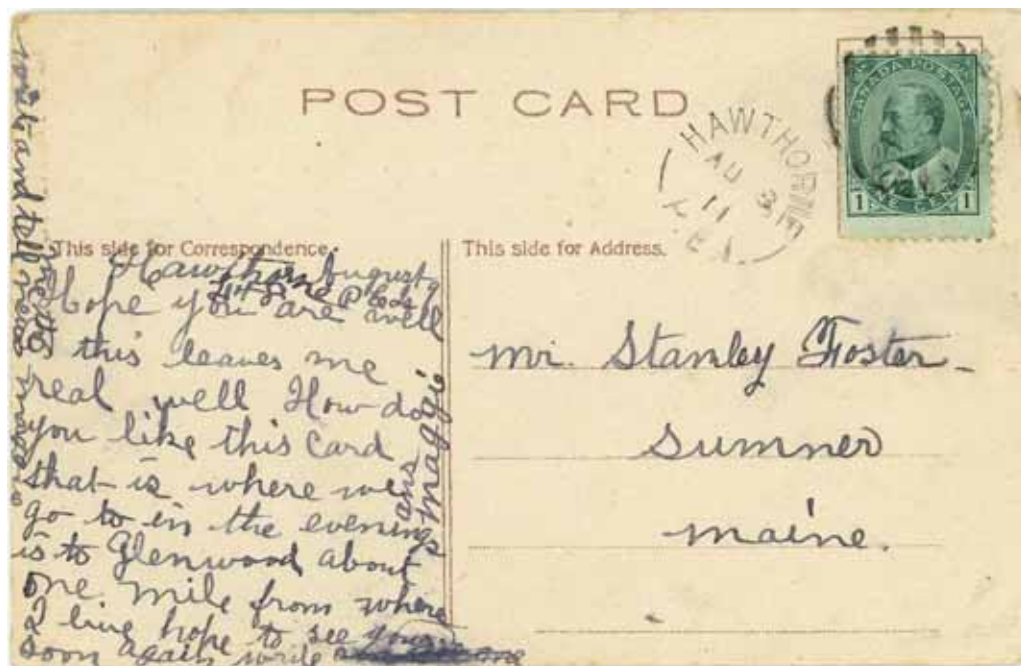 POST CARD
HAWTHORNE
AU 3
11
P.E.I.
CANADA POSTAGE
1 ONE CENT 1
This side for Correspondence.
This side for Address.
Hawthorne August
Hope you are well
as this leaves me
real well How do
you like this card
that is where we
go to in the evenings
is to Glenwood about
one mile from where
I live hope to see you
soon again write
ans
Maggie
write and tell me
Mr. Stanley Foster
Sumner
Maine.